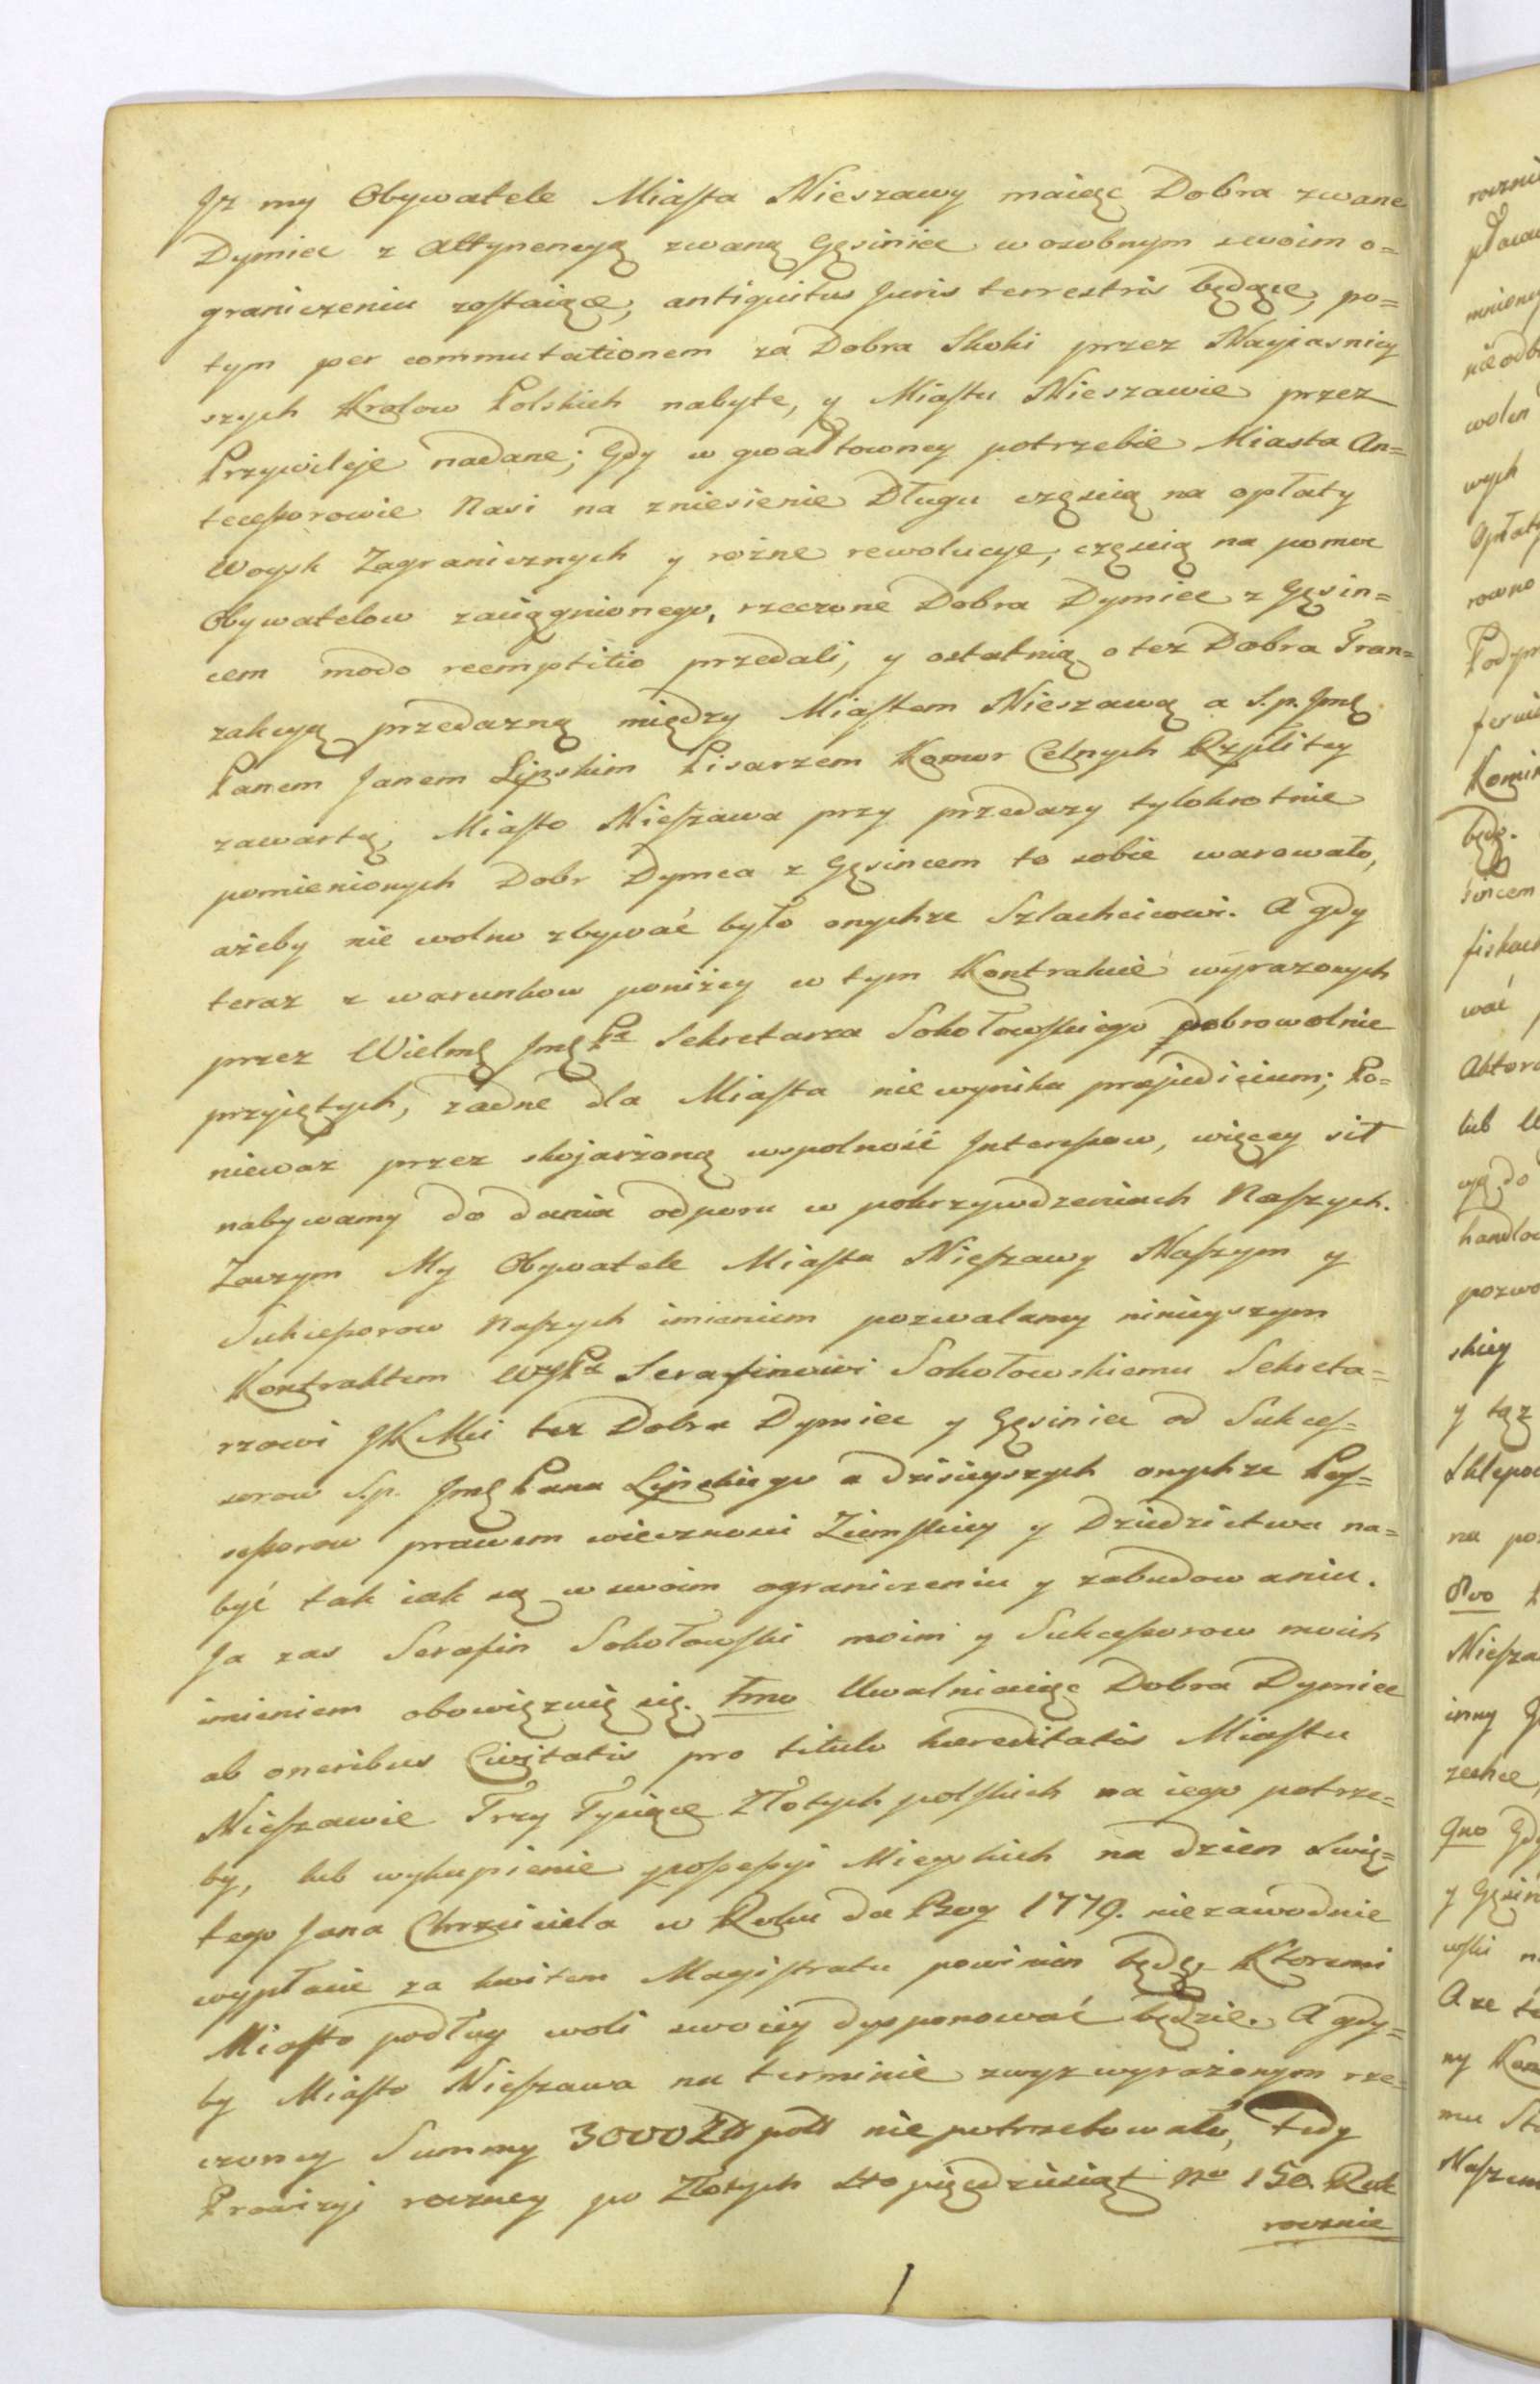 Jz my Obywatele Miasta Nieszawy maięc Dobra zwane
Dymiec z Attynencyą zwaną Gęsiniec w osobnym swoim o=
graniczeniu zostaiące, antiquitus Juris terrestris będące, po=
tym per commutationem za Dobra Skoki przez Nayiasniey
szych Krolow Polskich nabyte, y Miastu Nieszawie przez
Przywileje nadane; Gdy w gwałtowney potrzebie Miasta An=
tecessorowie Nasi na zniesienie Długu częscią na opłaty
Woysk Zagranicznych y rożne rewolucye, częscią na pomoc
Obywatelow zaciągnionego, rzeczone Dobra Dymiec z Gęsin=
cem modo reemptitio przedali, y ostatnią o też Dobra Tran=
zakcyą przedazną między Miastem Nieszawą a S.p. Jmę
Panem Janem Lipskim Pisarzem Komor Celnych Rzplitey
zawartą, Miasto Nieszawa przy przedazy tylokrotnie
pomienionych Dobr Dymca z Gęsincem to sobie warowało,
ażeby nie wolno zbywać było onychze Szlachcicowi. A gdy
teraz z warunkow poniżey w tym Kontrakcie wyrazonych
przez Wielmę Jmę Pa Sekretarza Sokołowskiego dobrowolnie
przyiętych, żadne dla Miasta nie wynika præjudicium; Po=
nieważ przez skojarzoną wspolność Interessow, więcey sił
nabywamy do dania odporu w pokrzywdzeniach Naszych.
Zaczym My Obywatele Miasta Nieszawy Naszym y
Sukcessorow Naszych imieniem pozwalamy ninieyszym
Kontraktem WJPa Serafinowi Sokołowskiemu Sekreta=
rzowi JKMci też Dobra Dymiec y Gęsiniec od Sukces=
sorow S.p. Jmę Pana Lipskiego a dzisieyszych onychze Pos=
sessorow prawem wiecznosci Ziemskiey y Dziedzictwa na=
być tak iak są w swoim ograniczeniu y zabudowaniu.
Ja zas Serafin Sokołowski moim y Sukcessorow moich
imieniem obowięzuię się. Imo Uwalniaięc Dobra Dymiec
ab oneribus Civitatis pro titulo hæreditatis Miastu
Nieszawie Trzy Tysiące Złotych polskich na iego potrze=
by, lub wykupienie possessyi Mieyskich na dzien Swię=
tego Jana Chrzciciela w Roku da Bog 1779. niezawodnie
wypłacić za kwitem Magistratu powinien będę, Ktoremi
Miasto podług woli swoiey dysponować będzie. A gdy=
by Miasto Nieszawa na terminie zwyz wyrażonym rze=
czoney Summy 3000 Zł pols nie potrzebowało, tedy
Prowizyi roczney po Złotych sto pięcdziesiąt No 150. Rok
rocznie